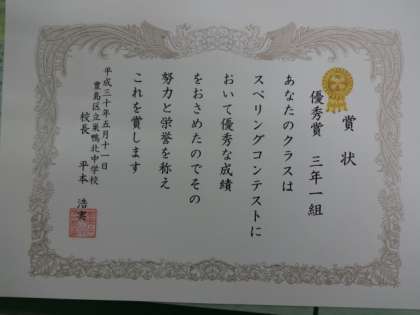 賞状
優秀賞 三年一組
あなたのクラスは
スペリングコンテストに
おいて優秀な成績
をおさめたのでその
努力と栄誉を称え
これを賞します
平成三十年五月十一日
豊島区立巣鴨北中学校
校長 平本 浩実